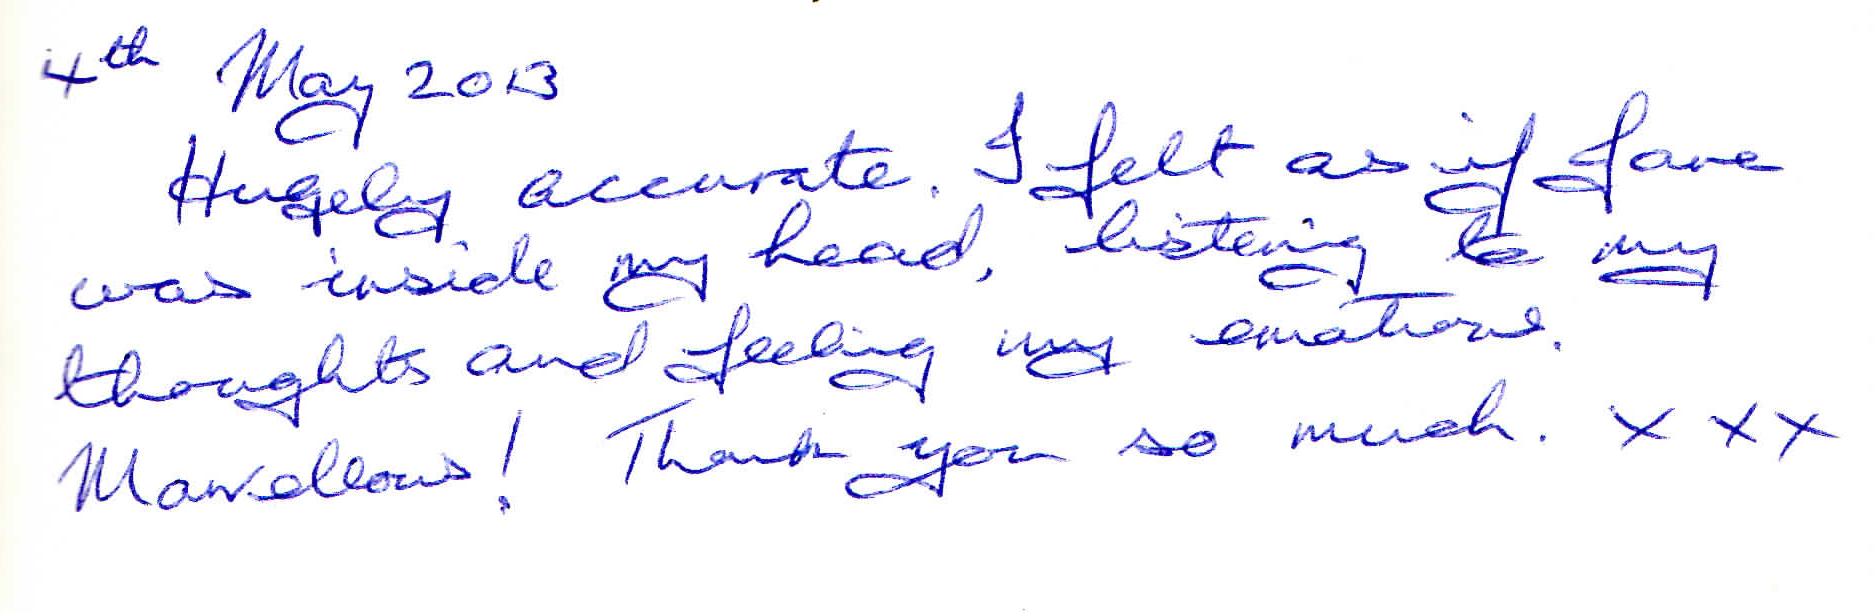 4th May 2013
Hugely accurate. I felt as if Jane
was inside my head, listening to my
thoughts and feeling my emotions.
Marvellous! Thank you so much. x x x